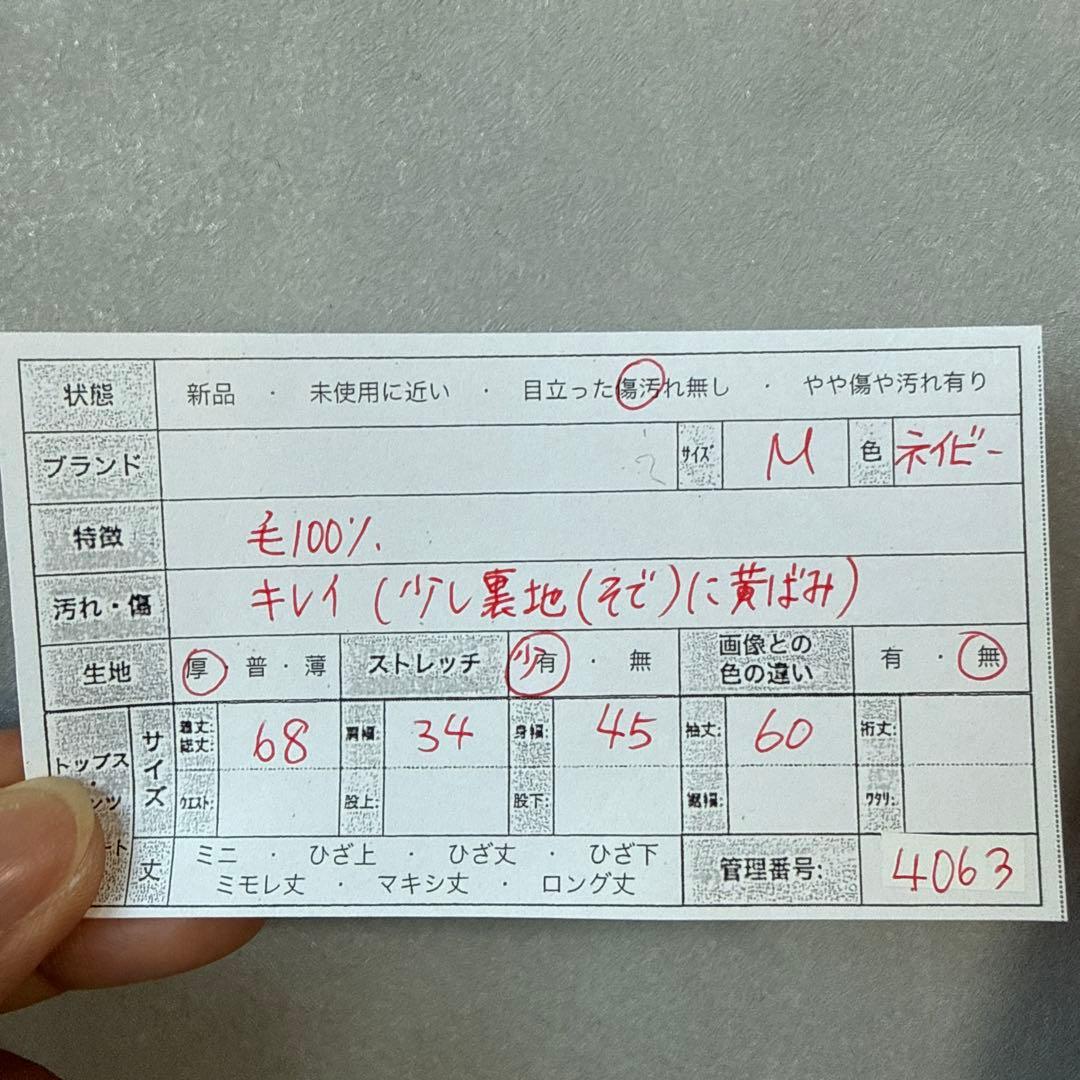 状態 新品 ・ 未使用に近い ・ 目立った傷汚れ無し ・ やや傷や汚れ有り
ブランド サイズ M 色 ネイビー
特徴 毛100%.
汚れ・傷 キレイ (少し裏地(そで)に黄ばみ)
生地 厚・普・薄 ストレッチ 少有・無 画像との色の違い 有・無
トップス サイズ 着丈: 総丈: 68 肩幅: 34 身幅: 45 袖丈: 60 裄丈:
ウエスト: 股上: 股下: 裾幅: ワタリ:
丈 ミニ ・ ひざ上 ・ ひざ丈 ・ ひざ下
ミモレ丈 ・ マキシ丈 ・ ロング丈
管理番号: 4063